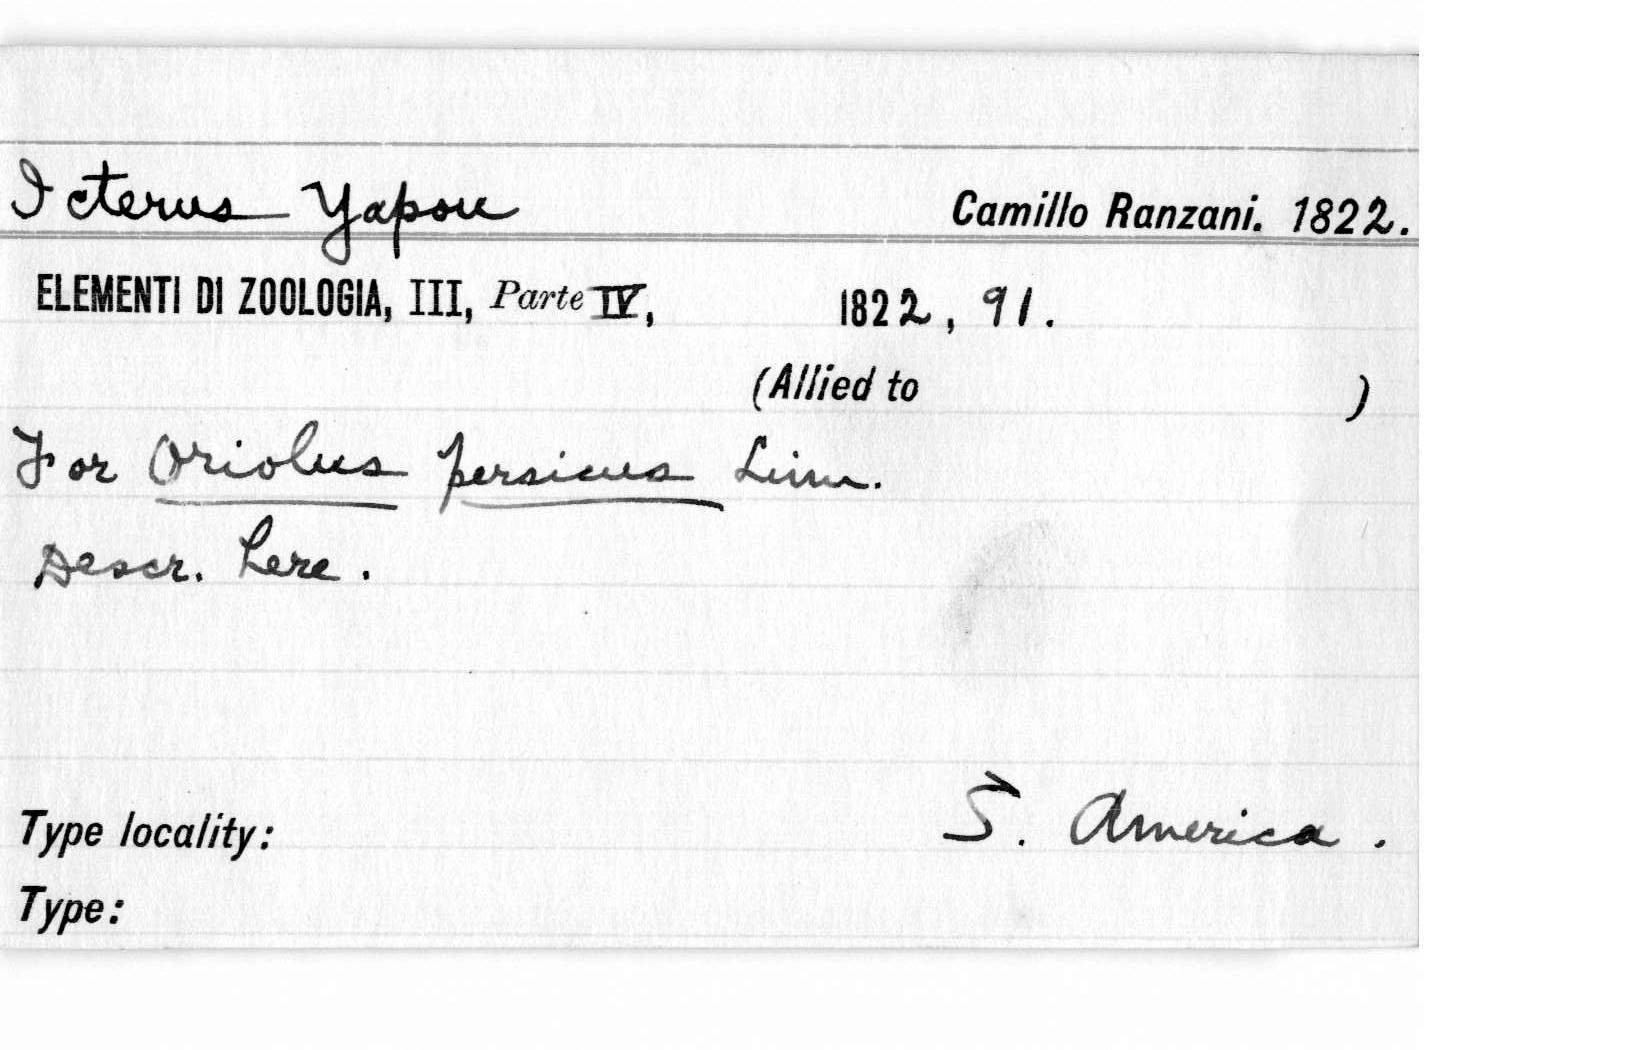 Icterus Yapou Camillo Ranzani. 1822.
ELEMENTI DI ZOOLOGIA, III, Parte IV, 1822, 91.
(Allied to )
For Oriolus persicus Linn.
Descr. here.
Type locality: S. America.
Type: